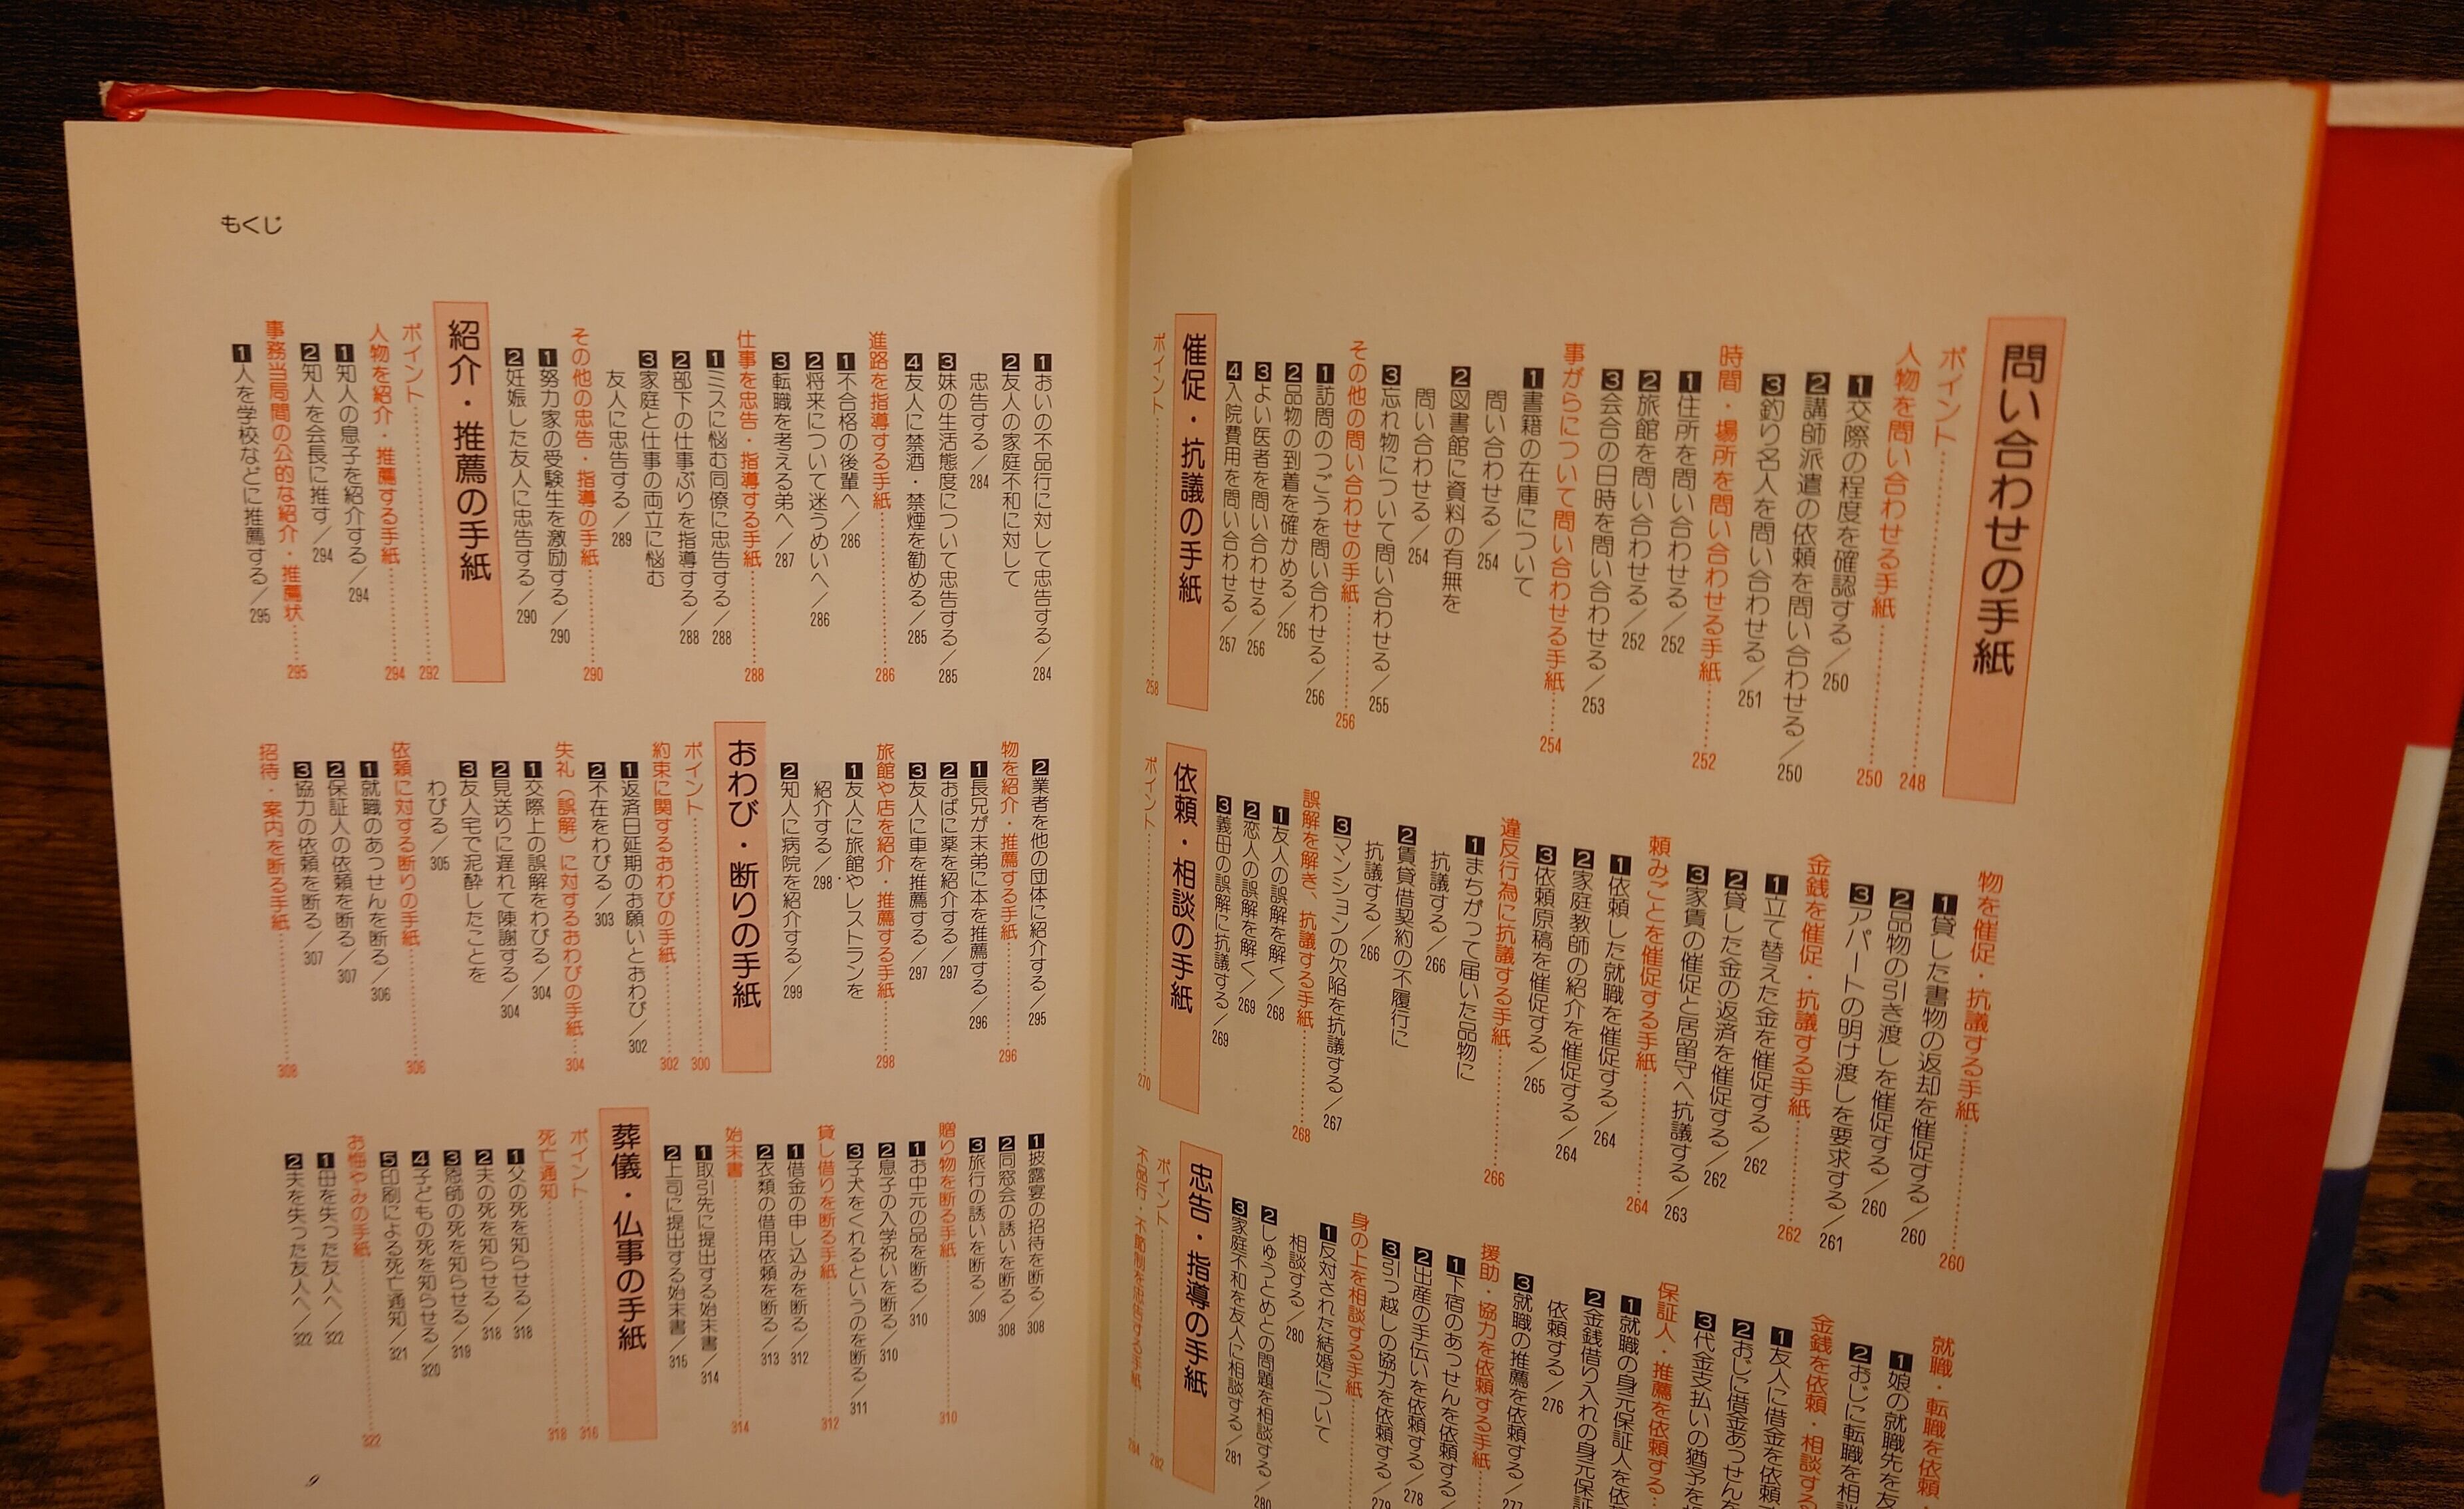 問い合わせの手紙
ポイント……248
人物を問い合わせる手紙……250
1交際の程度を確認する/250
2講師派遣の依頼を問い合わせる/250
3釣り名人を問い合わせる/251
時間・場所を問い合わせる手紙……252
1住所を問い合わせる/252
2旅館を問い合わせる/252
3会合の日時を問い合わせる/253
事がらについて問い合わせる手紙……254
1書籍の在庫について
問い合わせる/254
2図書館に資料の有無を
問い合わせる/254
3忘れ物について問い合わせる/255
その他の問い合わせの手紙……256
1訪問のつごうを問い合わせる/256
2品物の到着を確かめる/256
3よい医者を問い合わせる/256
4入院費用を問い合わせる/257
催促・抗議の手紙
ポイント……258
物を催促・抗議する手紙……260
1貸した書物の返却を催促する/260
2品物の引き渡しを催促する/260
3アパートの明け渡しを要求する/261
金銭を催促・抗議する手紙……262
1立て替えた金を催促する/262
2貸した金の返済を催促する/262
3家賃の催促と居留守へ抗議する/263
頼みごとを催促する手紙……264
1依頼した就職を催促する/264
2家庭教師の紹介を催促する/264
3依頼原稿を催促する/265
違反行為に抗議する手紙……266
1まちがって届いた品物に
抗議する/266
2賃貸借契約の不履行に
抗議する/266
3マンションの欠陥を抗議する/267
誤解を解き、抗議する手紙……268
1友人の誤解を解く/268
2恋人の誤解を解く/269
3義母の誤解に抗議する/269
依頼・相談の手紙
ポイント……270
就職・転職を依頼・
1娘の就職先を友
2おじに転職を相談
金銭を依頼・相談する
1友人に借金を依頼
2おじに借金あっせんを
3代金支払いの猶予を
保証人・推薦を依頼する…
1就職の身元保証人を依
2金銭借り入れの身元保証
依頼する/276
3就職の推薦を依頼する/277
援助・協力を依頼する手紙……
1下宿のあっせんを依頼する/
2出産の手伝いを依頼する/278
3引っ越しの協力を依頼する/279
身の上を相談する手紙……
1反対された結婚について
相談する/280
2しゅうとめとの問題を相談する/280
3家庭不和を友人に相談する/281
忠告・指導の手紙
ポイント……282
不品行・不節制を忠告する手紙……284
もくじ
1おいの不品行に対して忠告する/284
2友人の家庭不和に対して
忠告する/284
3妹の生活態度について忠告する/285
4友人に禁酒・禁煙を勧める/285
進路を指導する手紙……286
1不合格の後輩へ/286
2将来について迷うめいへ/286
3転職を考える弟へ/287
仕事を忠告・指導する手紙……288
1ミスに悩む同僚に忠告する/288
2部下の仕事ぶりを指導する/288
3家庭と仕事の両立に悩む
友人に忠告する/289
その他の忠告・指導の手紙……290
1努力家の受験生を激励する/290
2妊娠した友人に忠告する/290
紹介・推薦の手紙
ポイント……292
人物を紹介・推薦する手紙……294
1知人の息子を紹介する/294
2知人を会長に推す/294
事務当局間の公的な紹介・推薦状……295
1人を学校などに推薦する/295
2業者を他の団体に紹介する/295
物を紹介・推薦する手紙……296
1長兄が末弟に本を推薦する/296
2おばに薬を紹介する/297
3友人に車を推薦する/297
旅館や店を紹介・推薦する手紙……298
1友人に旅館やレストランを
紹介する/298
2知人に病院を紹介する/299
おわび・断りの手紙
ポイント……300
約束に関するおわびの手紙……302
1返済日延期のお願いとおわび/302
2不在をわびる/303
失礼(誤解)に対するおわびの手紙…304
1交際上の誤解をわびる/304
2見送りに遅れて陳謝する/304
3友人宅で泥酔したことを
わびる/305
依頼に対する断りの手紙……306
1就職のあっせんを断る/306
2保証人の依頼を断る/307
3協力の依頼を断る/307
招待・案内を断る手紙……308
1披露宴の招待を断る/308
2同窓会の誘いを断る/308
3旅行の誘いを断る/309
贈り物を断る手紙……310
1お中元の品を断る/310
2息子の入学祝いを断る/310
3子犬をくれるというのを断る/311
貸し借りを断る手紙……312
1借金の申し込みを断る/312
2衣類の借用依頼を断る/313
始末書……314
1取引先に提出する始末書/314
2上司に提出する始末書/315
葬儀・仏事の手紙
ポイント……316
死亡通知……318
1父の死を知らせる/318
2夫の死を知らせる/318
3恩師の死を知らせる/319
4子どもの死を知らせる/320
5印刷による死亡通知/321
お悔やみの手紙……322
1母を失った友人へ/322
2夫を失った友人へ/322
9